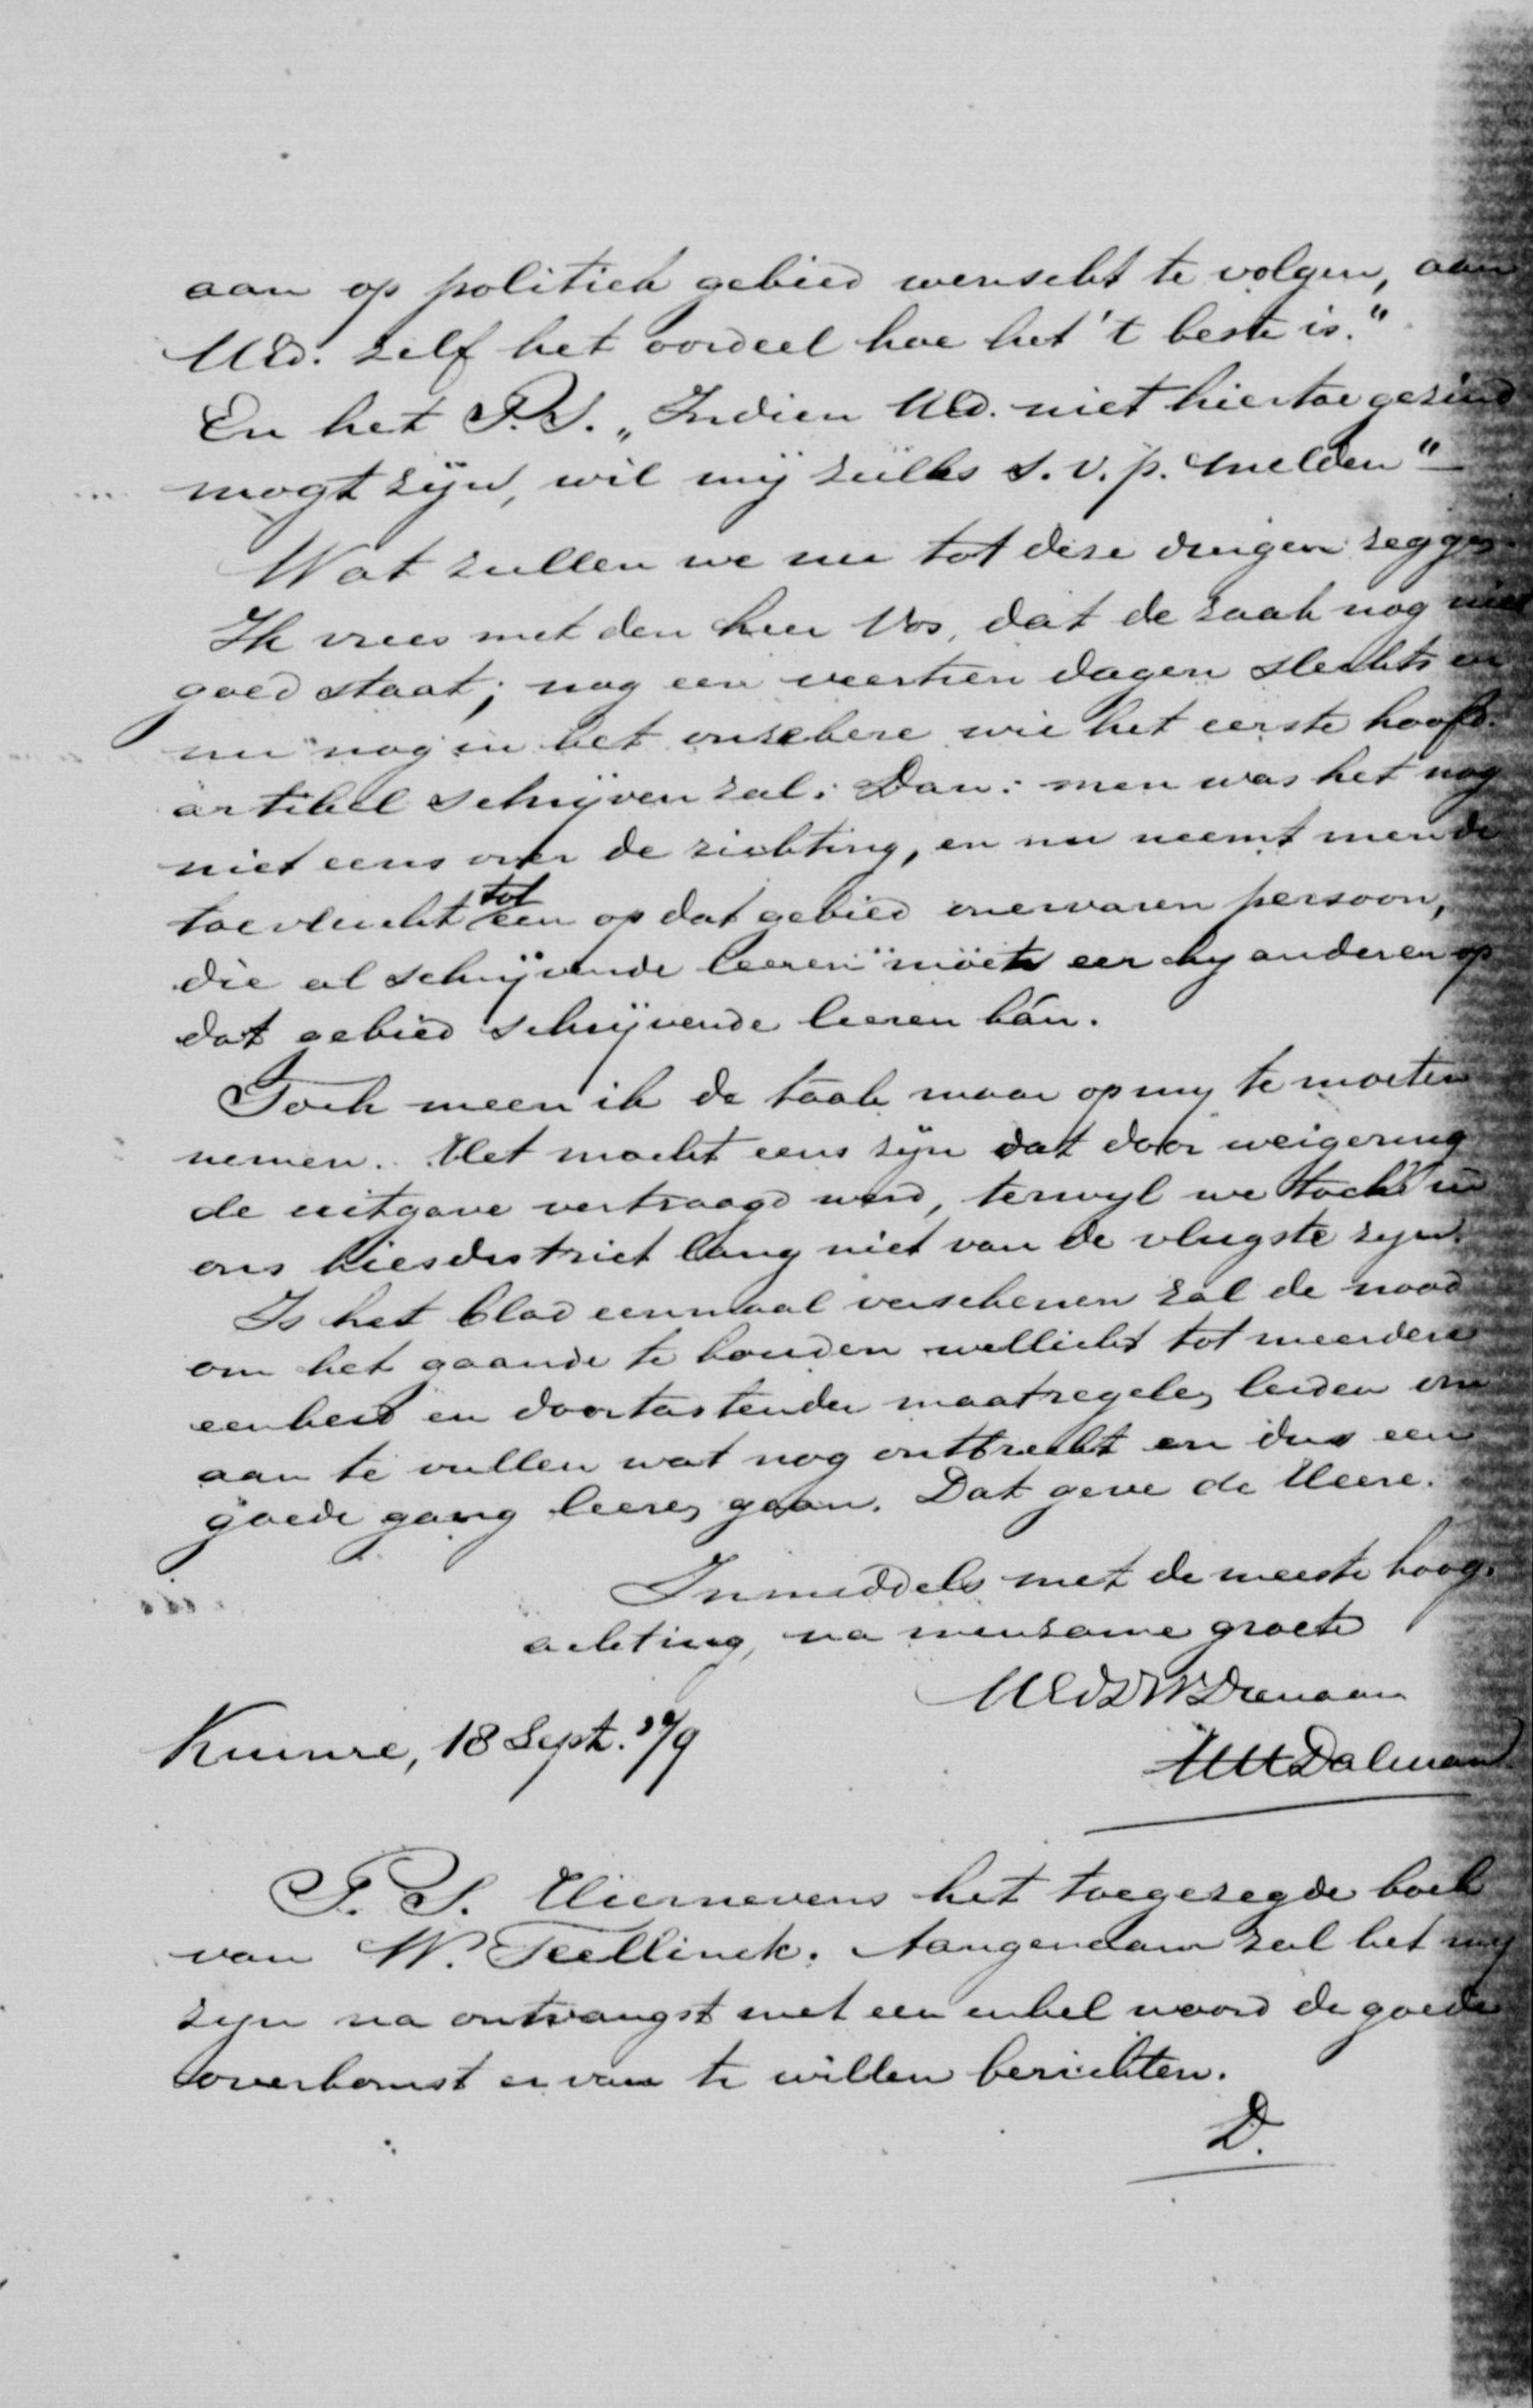 aan op politiek gebied wenscht te volgen, aan
UEd. zelf het oordeel hoe het 't beste is."
En het P.S. „Indien UEd. niet hiertoe gezind
mogt zijn, wil mij zulks s.v.p. melden"
Wat zullen we nu tot deze dingen zeggen.
Ik vrees met den heer Vos, dat de zaak nog niet
goed staat; nog een veertien dagen slechts en
nu nog in het onzekere wie het eerste hoofd-
artikel schrijven zal. Dan: men was het nog
niet eens over de richting, en nu neemt men de
tot
toevlucht een op dat gebied onervaren persoon,
die al schrijvende leeren moet eer hy anderen op
dat gebied schrijvende leeren kán.
Toch meen ik de taak maar op my te moeten
nemen. Het mocht eens zyn dat door weigering
de uitgave vertraagd werd, terwyl we toch in
ons kiesdistrict lang niet van de vlugste zyn.
Is het blad eenmaal verschenen zal de nood
om het gaande te houden wellicht tot meerdere
eenheid en doortastender maatregelen leiden om
aan te vullen wat nog ontbreekt en dus een
goede gang leeren gaan. Dat geve de Heere.
Inmiddels met de meeste hoog-
achting, na minzame groete
UEdDWDienaar
Dalman
Kuinre, 18 Sept. 79
P.S. Hiernevens het toegezegde boek
van W. Teellinck. Aangenaam zal het my
zyn na ontvangst met een enkel woord de goede
overkomst ervan te willen berichten.
D.